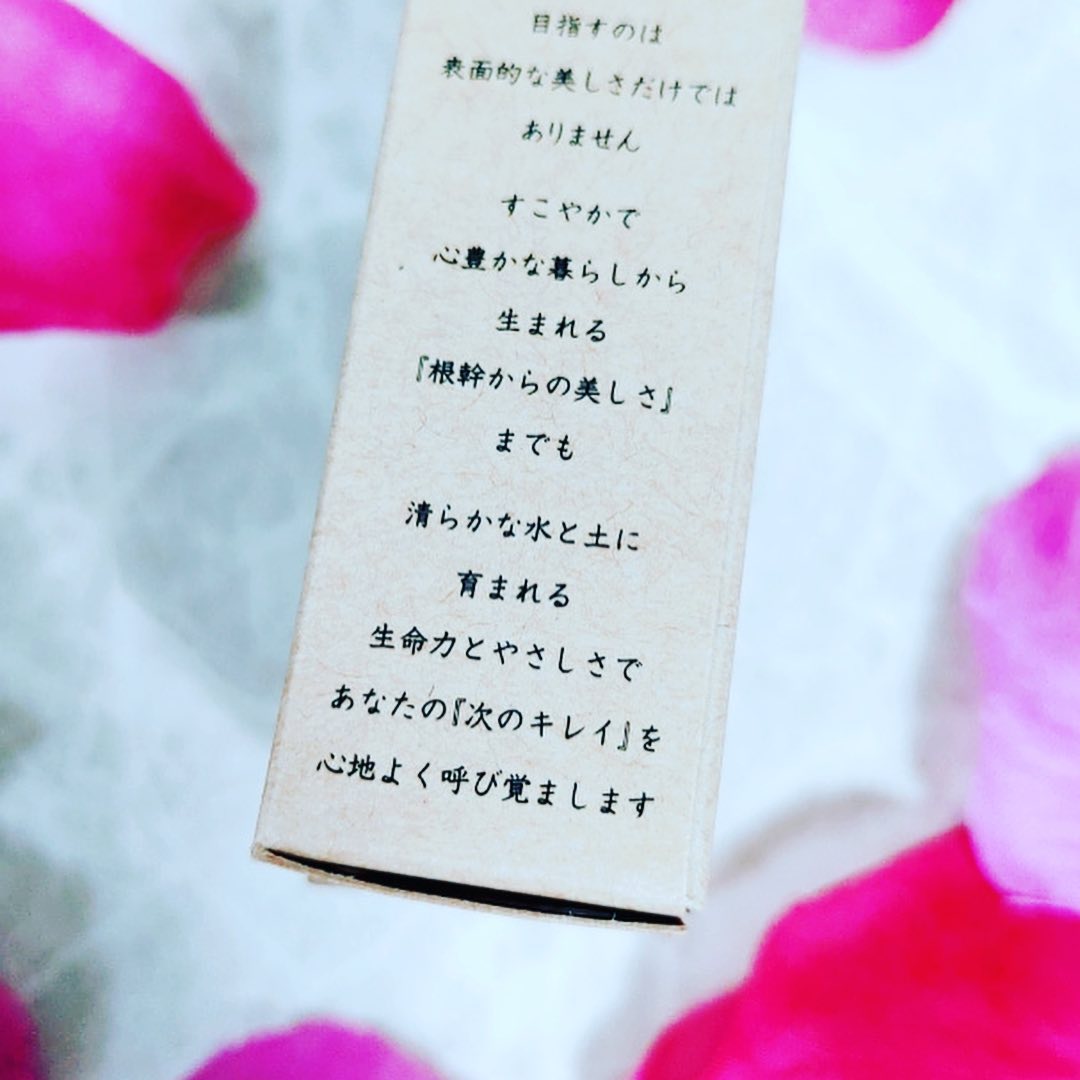 目指すのは
表面的な美しさだけでは
ありません
すこやかで
心豊かな暮らしから
生まれる
『根幹からの美しさ』
までも
清らかな水と土に
育まれる
生命力とやさしさで
あなたの『次のキレイ』を
心地よく呼び覚まします